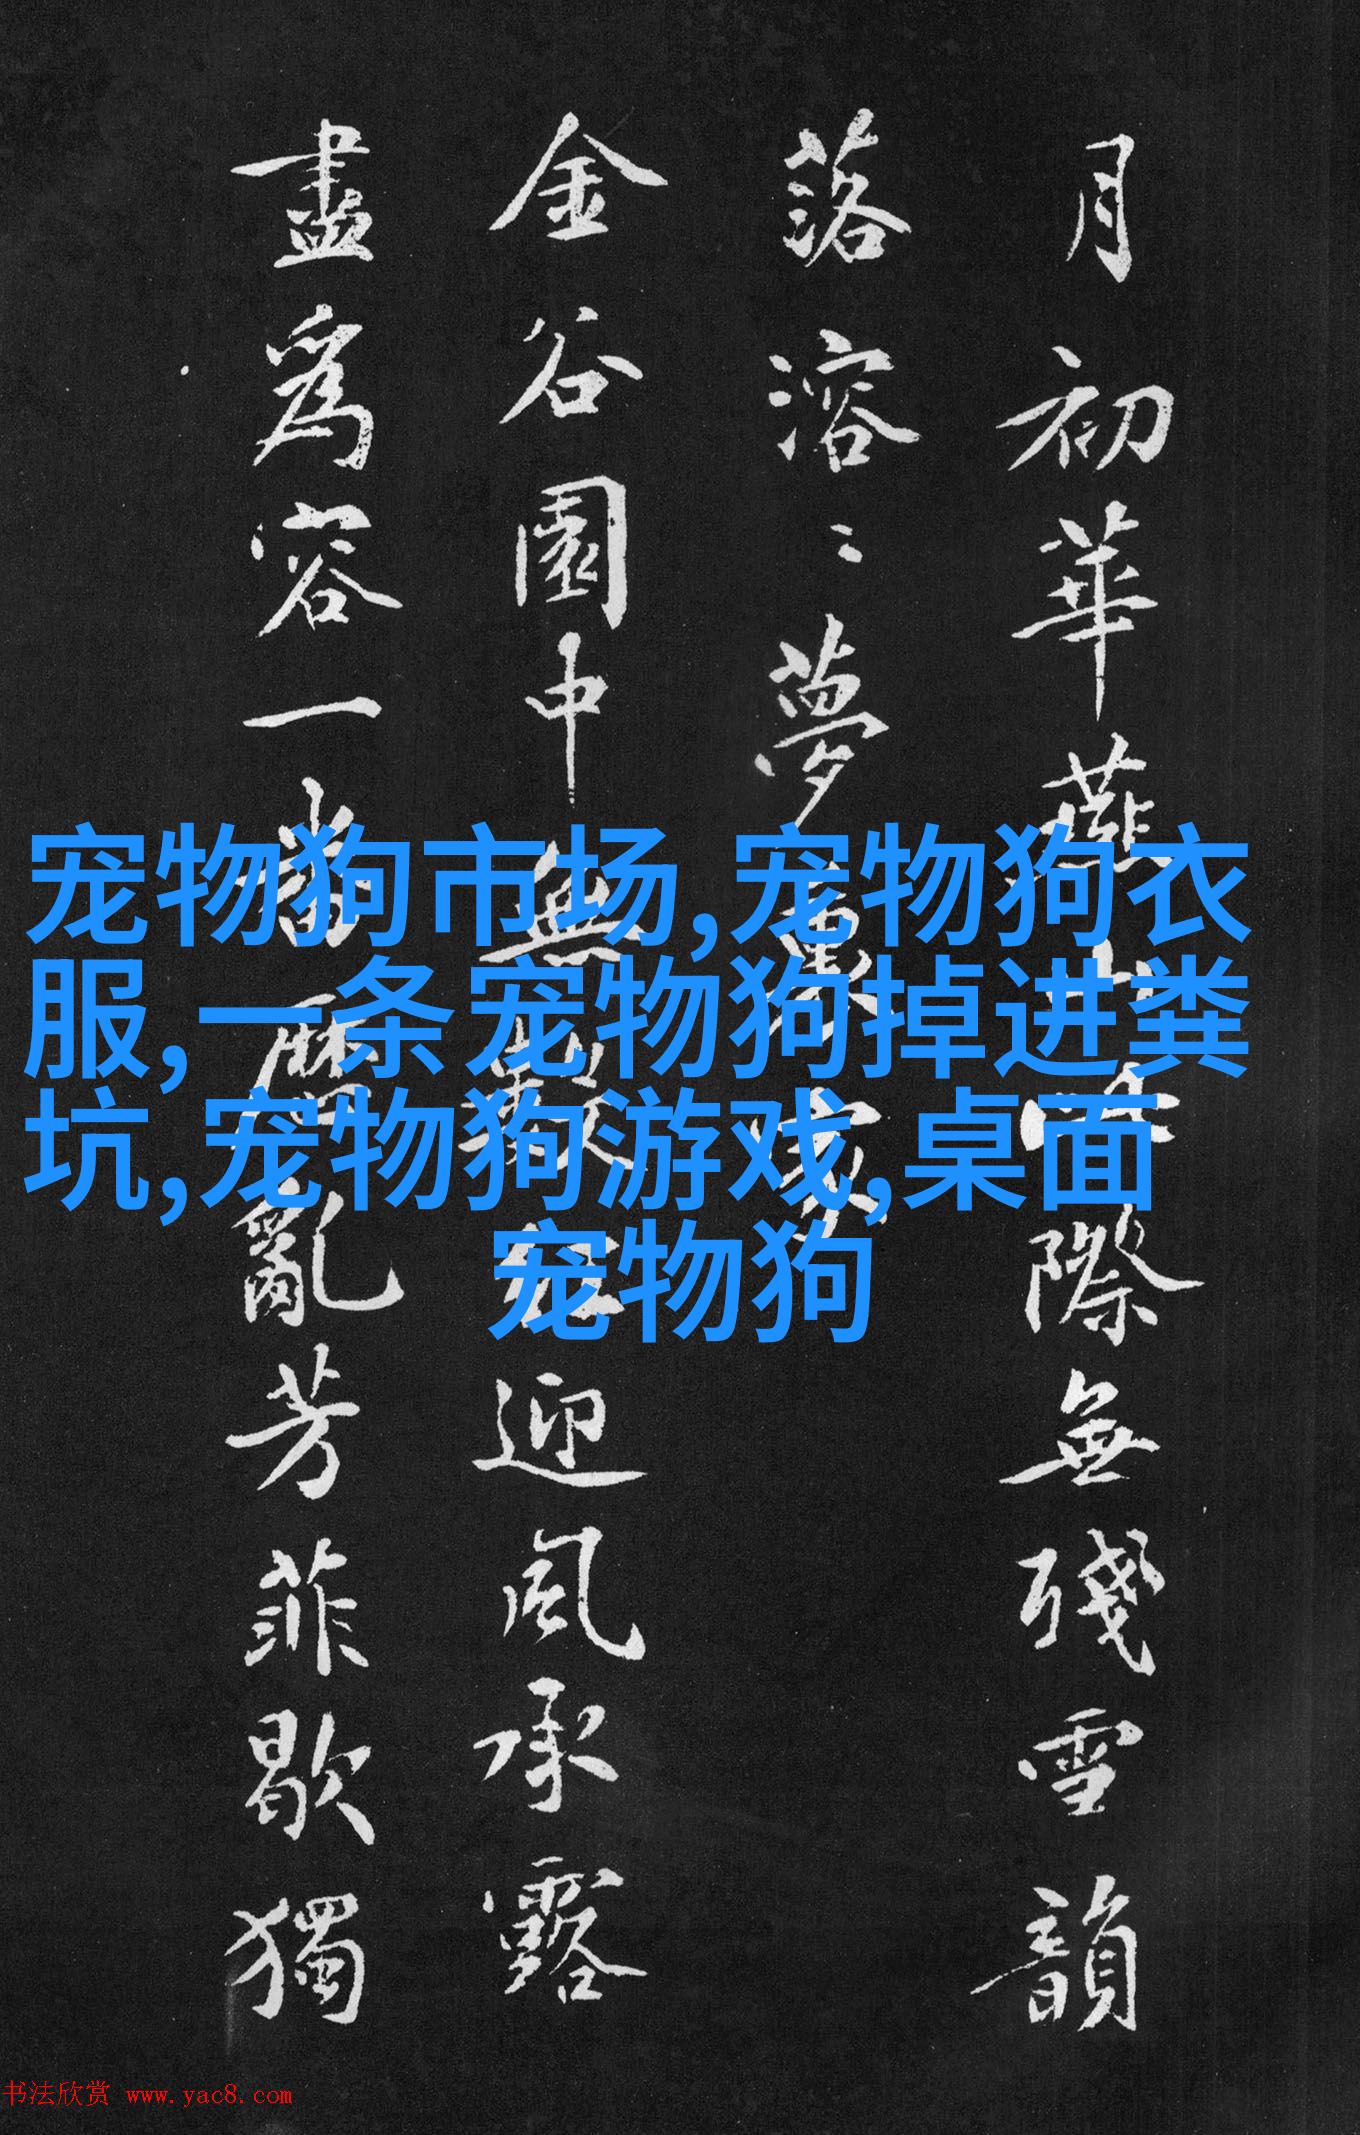 月初華燕山⿰際無殘雪韻
落溶〻夢裏家
金谷園中無數⿰迎風承露
盡為容一番歷亂芳菲歇獨
宠物狗市场,宠物狗衣
服,一条宠物狗掉进粪
坑,宠物狗游戏,桌面
宠物狗
书法欣赏 www.yac8.com